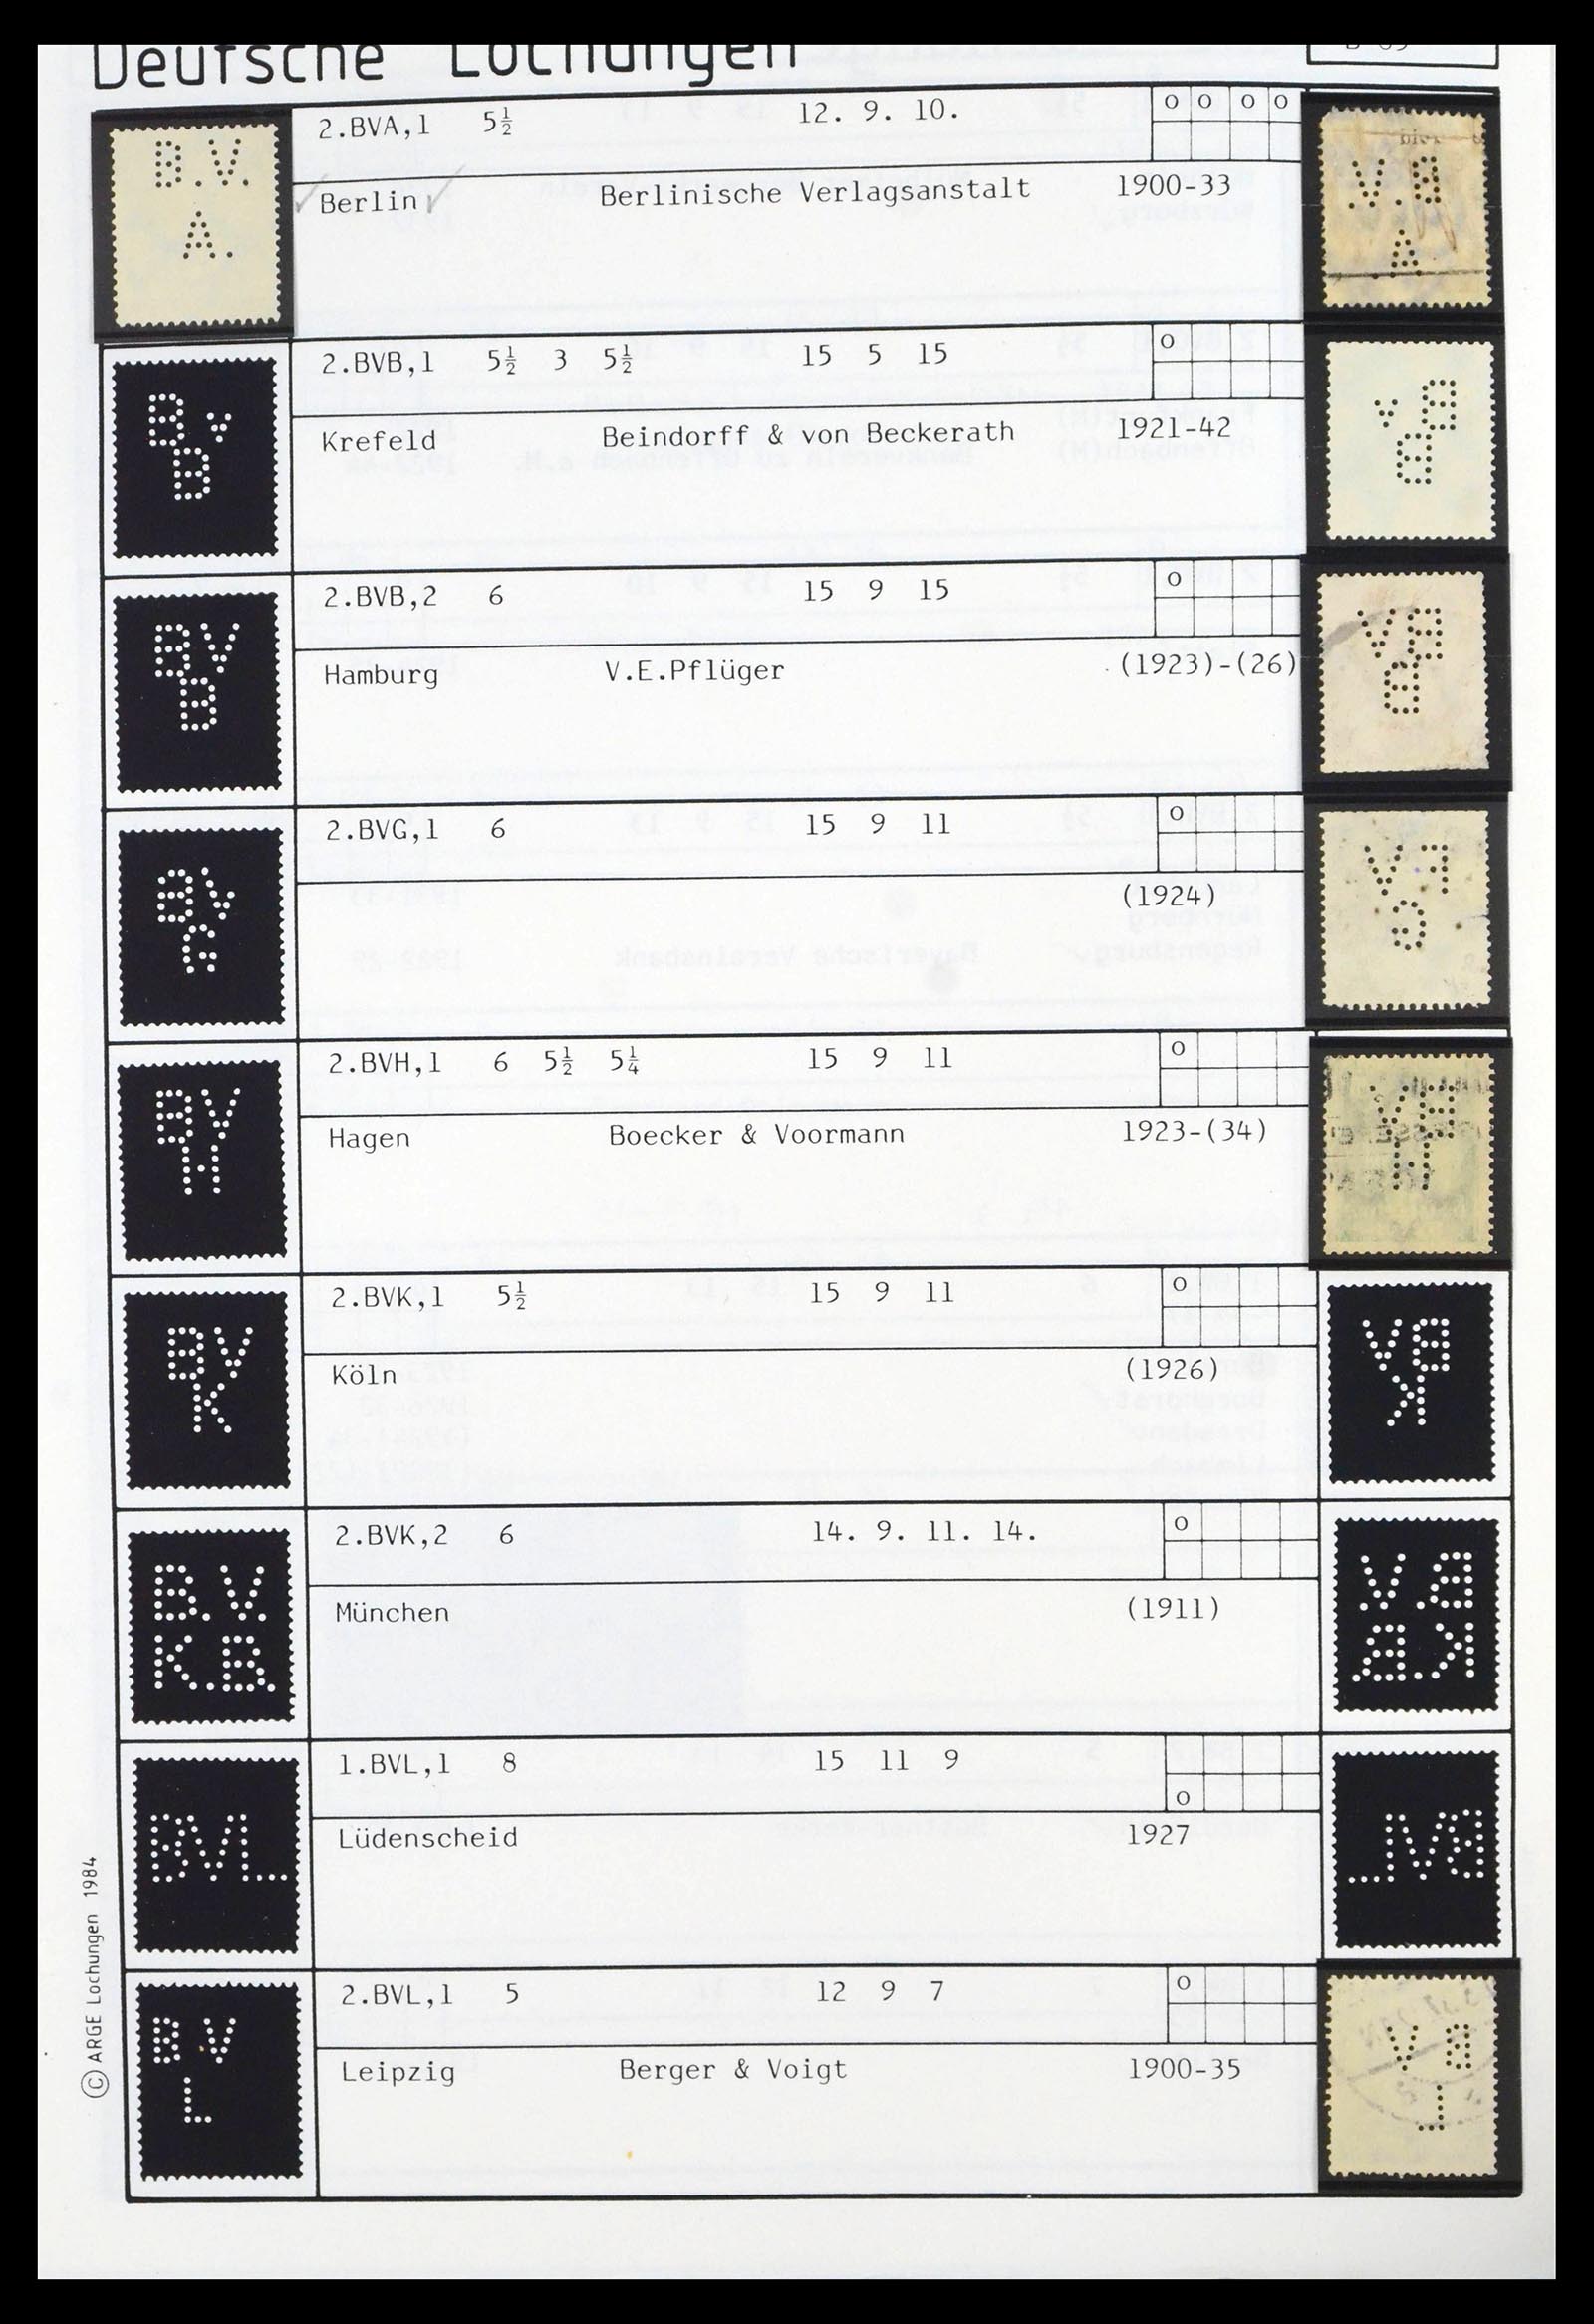 Deutsche Lochungen
B.V.
A.
2.BVA,1 5½ 12. 9. 10. o o o o
Berlin Berlinische Verlagsanstalt 1900-33
B v
B
2.BVB,1 5½ 3 5½ 15 5 15 o
Krefeld Beindorff & von Beckerath 1921-42
BV
B
2.BVB,2 6 15 9 15 o
Hamburg V.E.Pflüger (1923)-(26)
BV
G
2.BVG,1 6 15 9 11 o
(1924)
BV
H
2.BVH,1 6 5½ 5¼ 15 9 11 o
Hagen Boecker & Voormann 1923-(34)
BV
K
2.BVK,1 5½ 15 9 11 o
Köln (1926)
B.V.
K.B.
2.BVK,2 6 14. 9. 11. 14. o
München (1911)
BVL
1.BVL,1 8 15 11 9
o
Lüdenscheid 1927
B V
L
2.BVL,1 5 12 9 7 o
Leipzig Berger & Voigt 1900-35
© ARGE Lochungen 1984